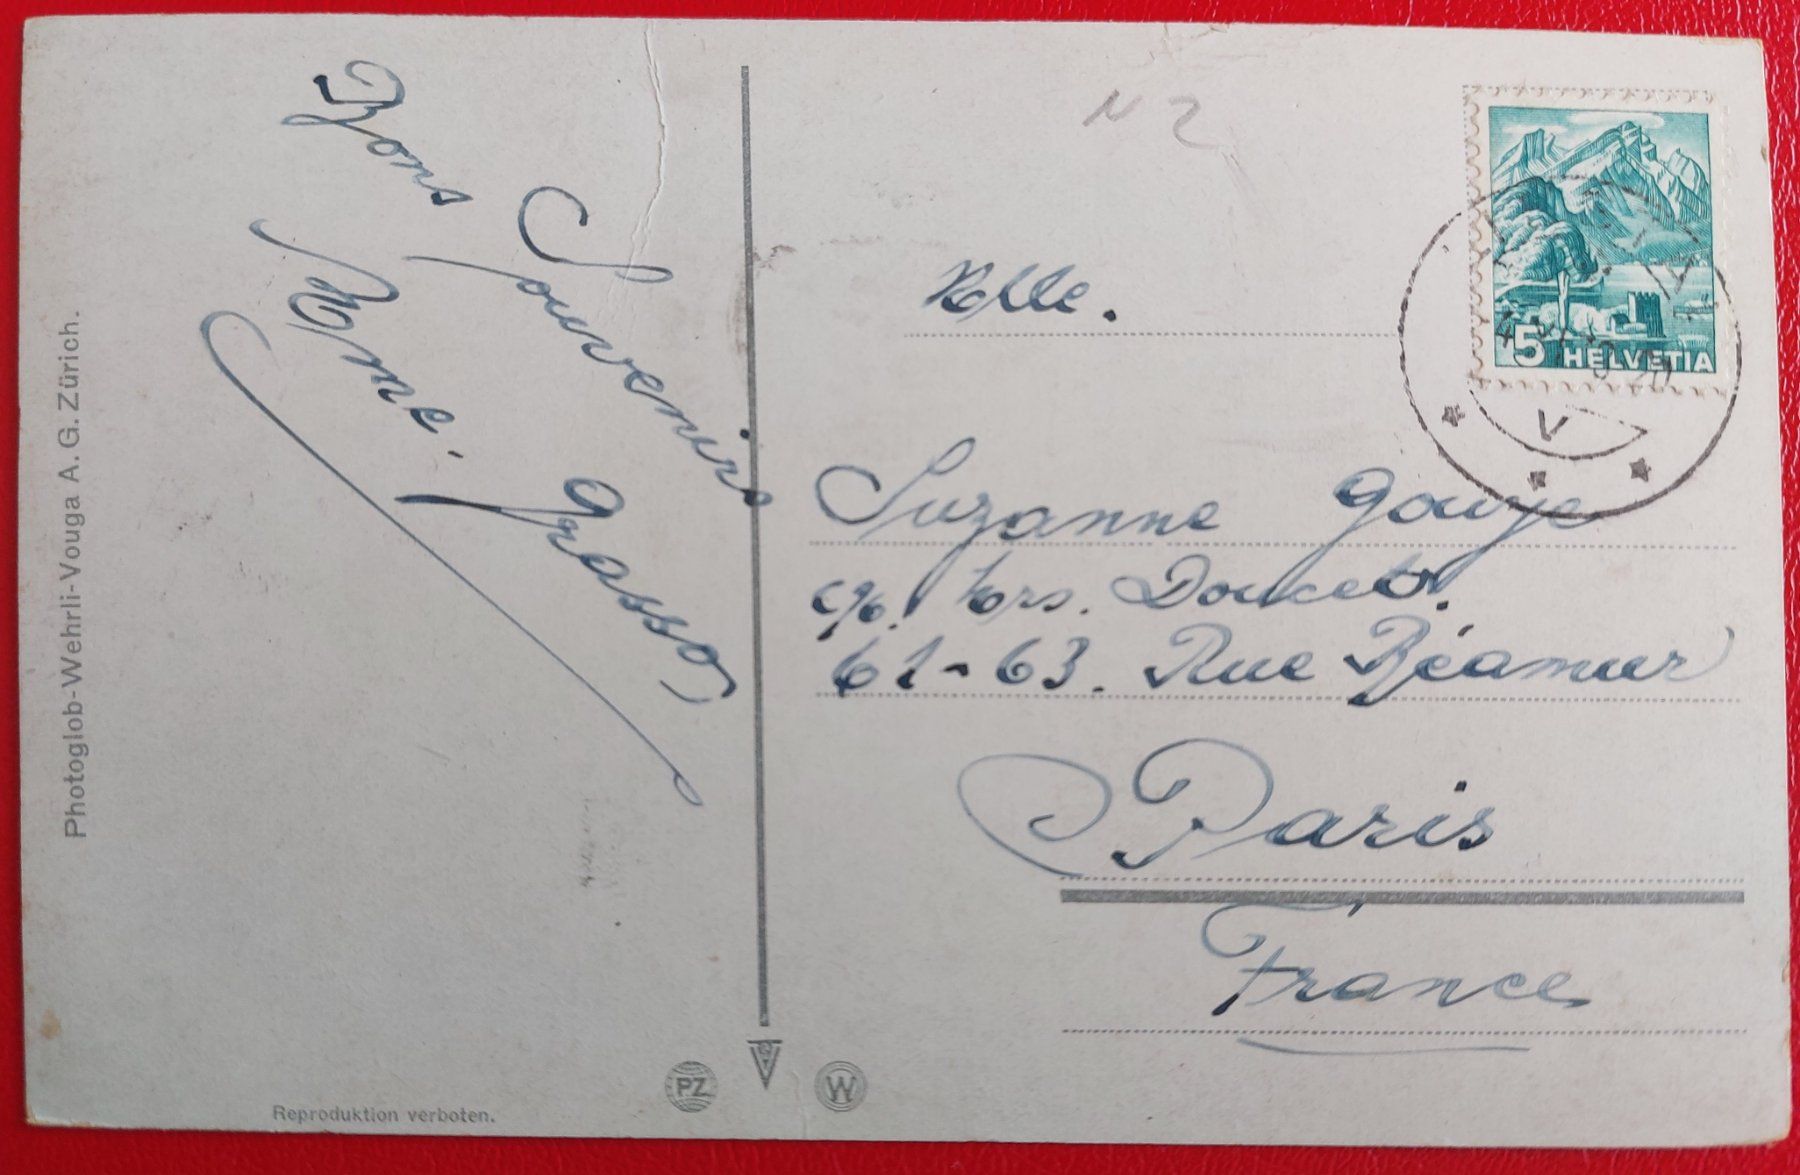 Bons Souvenirs
Mme. Grasso
N 2
Mlle.
Suzanne Gouye
c/o. Mrs. Doucet.
61-63. Rue Béamur
Paris
France
5 HELVETIA
V
Photoglob-Wehrli-Vouga A. G. Zürich.
Reproduktion verboten.
PZ
W